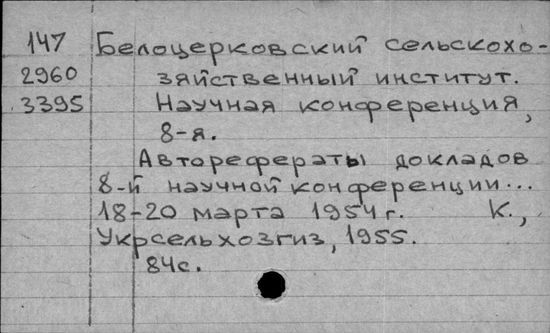 147 Белоцерковский сельскохо-
2960 зяйственный институт.
3395 Научная конференция,
8-я.
Авторефераты докладов
8-й научной конференции...
18-20 марта 1954 г. К.,
Укрсельхозгиз, 1955.
84с.